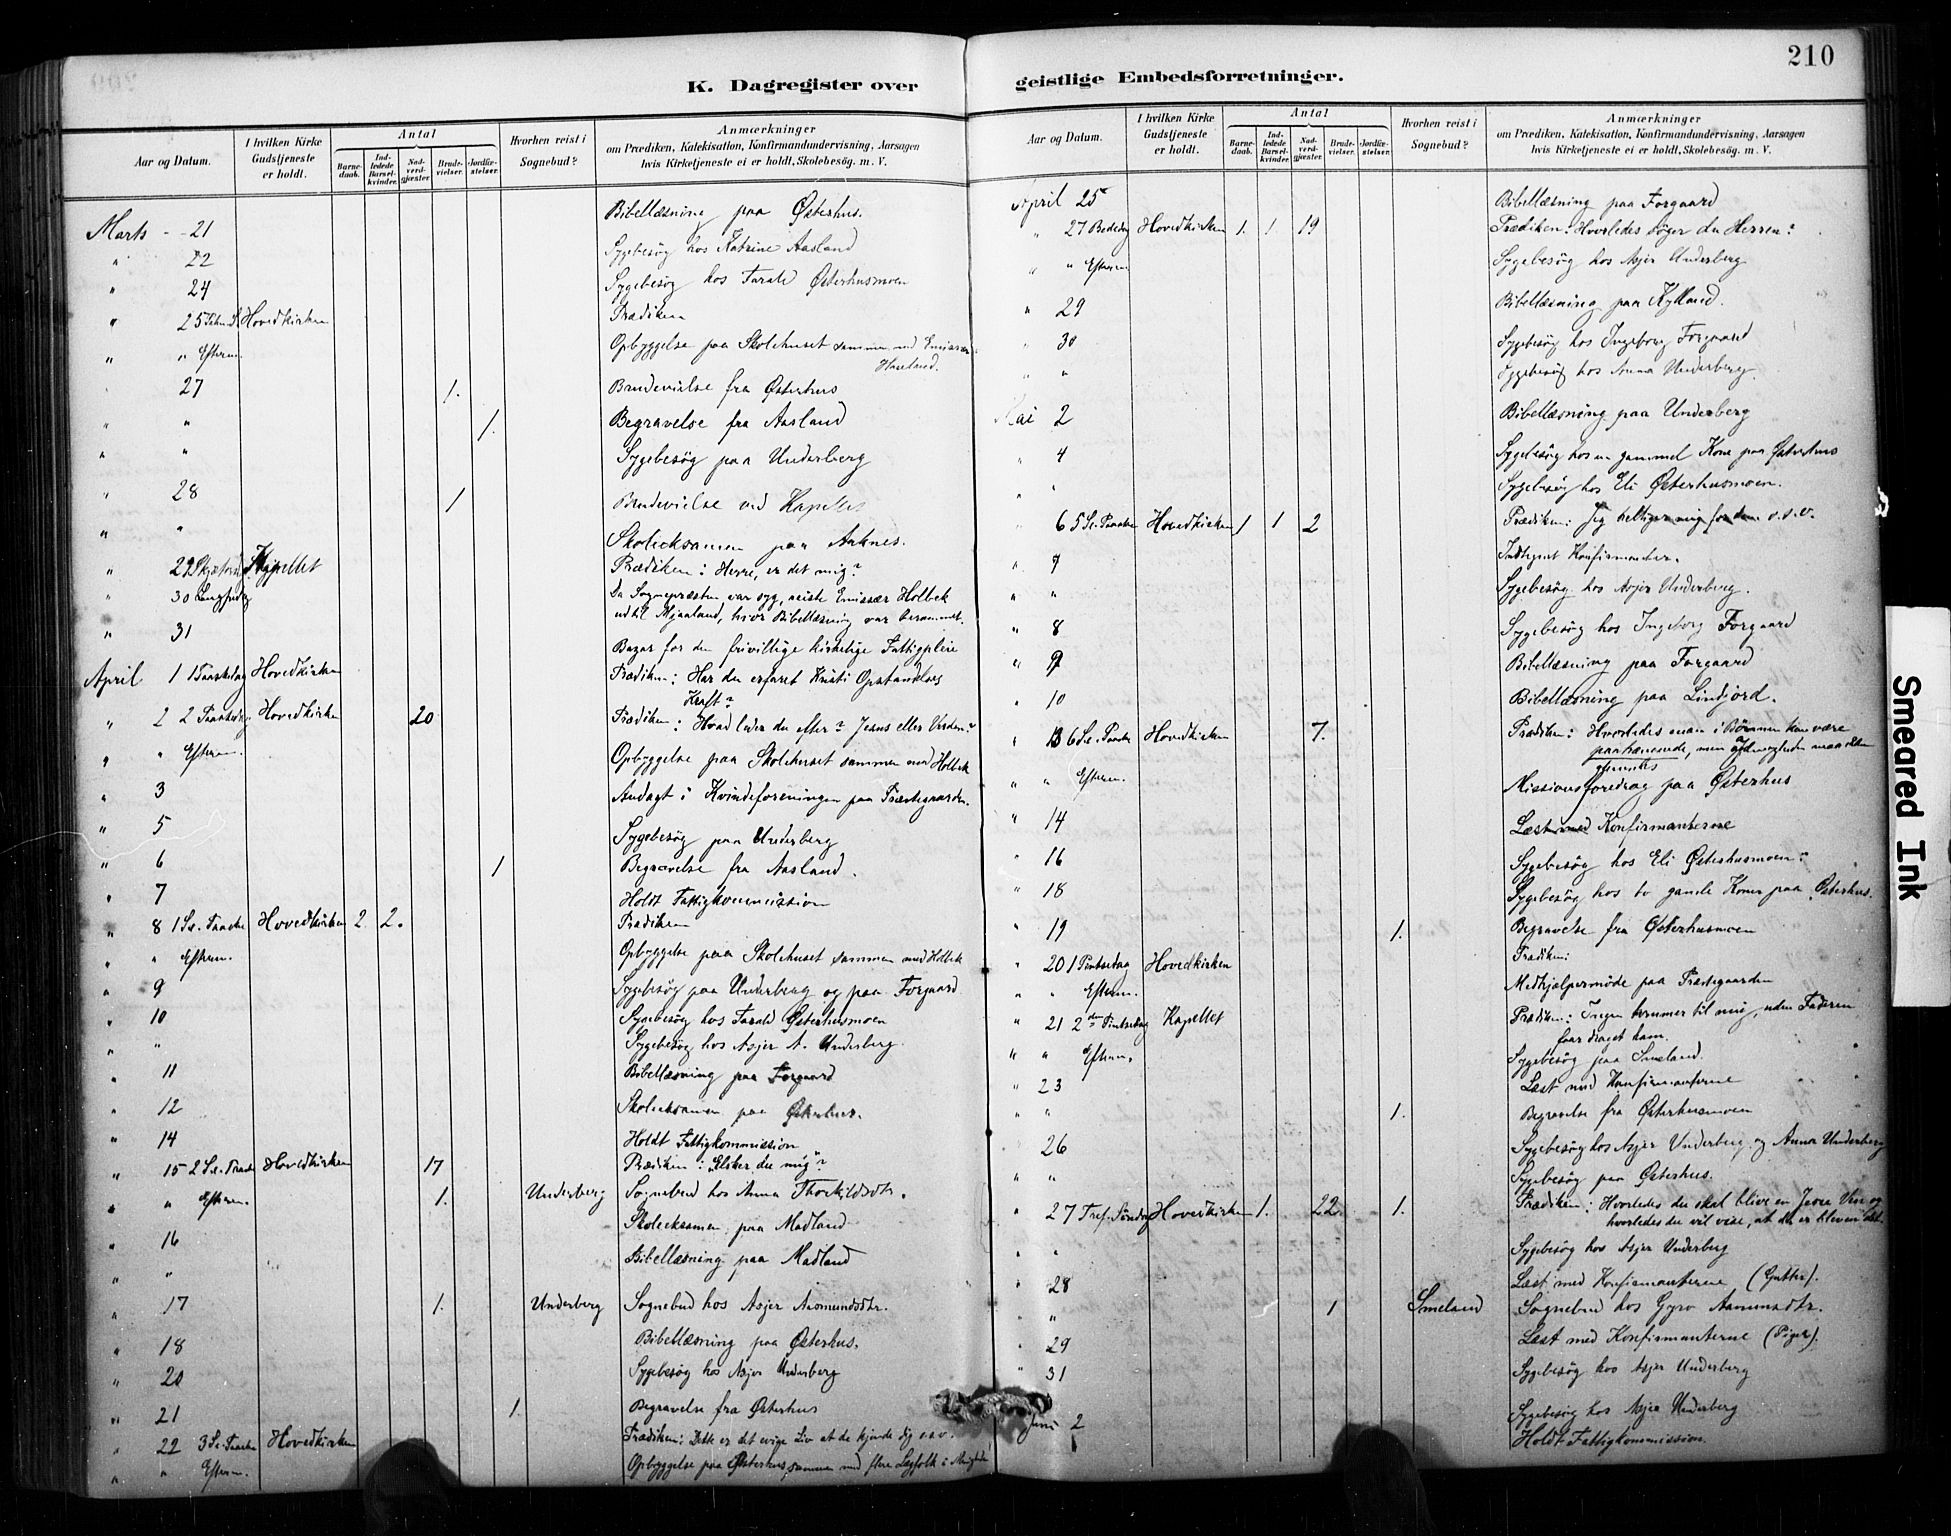 210
K. Dagregister over
Aar og Datum.
I hvilken Kirke Gudstjeneste er holdt.
Antal
Barne-daab.
Ind-ledede Barsel-kvinder.
Nad-verd-gjæster.
Brude-vielser.
Jordfæ-stelser.
Hvorhen reist i Sognebud?
Anmærkninger
om Prædiken, Katekisation, Konfirmandundervisning, Aarsagen
hvis Kirketjeneste ei er holdt, Skolebesøg. m. V.
Marts 21 Bibellæsning paa Østerhus.
" 22 Sygebesøg hos Katrine Aasland
" 24 Sygebesøg hos Tarald Østerhusmoen
" 25 Hovedkirken Prædiken
" " Efterm. Opbyggelse paa Skolehuset sammen med Emissær
Haveland.
27 1. Brudevielse fra Østerhus
" " 1. Begravelse fra Aasland
" " Sygebesøg paa Underberg
" 28 1 Brudevielse ved Kapellet
" " Skoleeksamen paa Aaknes.
" 29 Skjærtorsd. Kapellet Prædiken: Herre, er det mig?
" 30 Langfredag Da Sognepræsten var syg, reiste Emissær Holbek
ud til Mjaaland, hvor Bibellæsning var berammet.
" 31 Bazar for den frivillige kirkelige Fattigpleie
April 1 1 Paaskedag Hovedkirken Prædiken: Har du erfaret Kristi Opstandelses
Kraft?
" 2 2 Paaskedag Hovedkirken 20 Prædiken: Hvad leder du efter? Jesus eller Verden?
" " Efterm. Opbyggelse paa Skolehuset sammen med Holbek
" 3 Andagt i Kvindeforeningen paa Præstegaarden.
" 5 Sygebesøg paa Underberg
" 6 1 Begravelse fra Aasland.
" 7 Holdt Fattigkommission
" 8 1 Sø. Paaske Hovedkirken 2. 2. Prædiken
" " Efterm. Opbyggelse paa Skolehuset sammen med Holbek
" 9 Sygebesøg paa Underberg og paa Forgaard
" 10 Sygebesøg hos Tarald Østerhusmoen
" " Sygebesøg hos Asjer A. Underberg.
" 11 Bibellæsning paa Forgaard
" 12 Skoleeksamen paa Østerhus.
" 14 Holdt Fattigkommission
" 15 2 Sø. Paaske Hovedkirken 17 Prædiken: "Elsker du mig"?
" " Efterm. 1. Underberg Sognebud hos Anna Thorkildsdtr.
" 16 Skoleeksamen paa Madland
" " Bibellæsning paa Madland
" 17 1. Underberg Sognebud hos Asjer Aasmundsdtr.
" 18 Bibellæsning paa Østerhus.
" 20 Sygebesøg hos Asjer Underberg
" 21 1. Begravelse fra Østerhus
" 22 3 Sø. Paaske Hovedkirken Prædiken: Dette er det evige Liv at de kjende dig o.s.v.
" " Efterm. Opbyggelse paa Østerhus sammen med flere Lægfolk i Menigheden
geistlige Embedsforretninger.
Aar og Datum.
I hvilken Kirke Gudstjeneste er holdt.
Antal
Barne-daab.
Ind-ledede Barsel-kvinder.
Nad-verd-gjæster.
Brude-vielser.
Jordfæ-stelser.
Hvorhen reist i Sognebud?
Anmærkninger
om Prædiken, Katekisation, Konfirmandundervisning, Aarsagen
hvis Kirketjeneste ei er holdt, Skolebesøg. m. V.
April 25 Bibellæsning paa Forgaard
" 27 Bededag Hovedkirken 1. 1. 19 Prædiken: Hvorledes søger du Herren?
" " Efterm. Sygebesøg hos Asjer Underberg
" 29 Bibellæsning paa Kylland.
" 30 Sygebesøg hos Ingeborg Forgaard
" " Sygebesøg hos Anna Underberg.
Mai 2 Bibellæsning paa Underberg
" 4 Sygebesøg hos en gammel Kone paa Østerhus
" " Sygebesøg hos Eli Østerhusmoen.
" 6 5 Sø. Paaske Hovedkirken 1 1 2 Prædiken: Jeg helliger mig for dem o.s.v.
" 7 Indtegnet Konfirmanter.
" " Sygebesøg hos Asjer Underberg.
" 8 Sygebesøg hos Ingeborg Forgaard
" 9 Bibellæsning paa Forgaard
" 10 Bibellæsning paa Lindjord.
" 13 6 Sø. Paaske Hovedkirken 7. Prædiken: Hvorledes man i Bønnen kan være
paatrængende, men Ydmygheden maa ikke
glemmes
" " Efterm. Missionsforedrag paa Østerhus
" 14 Læst med Konfirmanterne
" 16 Sygebesøg hos Eli Østerhusmoen.
" 18 Sygebesøg hos to gamle Koner paa Østerhus.
" 19 1. Begravelse fra Østerhusmoen
" 20 1 Pintsedag Hovedkirken Prædiken:
" " Efterm. Medhjælpermøde paa Præstegaarden
" 21 2den Pintsedag Kapellet Prædiken: Ingen kommer til mig, uden Faderen
faar draget ham.
" " Efterm. Sygebesøg paa Smeland.
" 23 Læst med Konfirmanterne
" " 1. Begravelse fra Østerhusmoen
26 Sygebesøg hos Asjer Underberg og Anna Underberg
" " Sygebesøg paa Østerhus.
" 27 Tref. Søndag Hovedkirken 1. 22. 1. Prædiken: Hvorledes du skal blive en Jesu Ven og
hvorledes du vil vise, at du er bleven det.
" " Sygebesøg hos Asjer Underberg
" 28 Læst med Konfirmanterne (Gutter).
" " 1 Smeland Sognebud hos Gyro Aanundsdtr.
" 29 Læst med Konfirmanterne (Piger).
" 31 Sygebesøg hos Asjer Underberg
Juni 2 Sygebesøg hos Asjer Underberg
Holdt Fattigkommission.
Smeared Ink